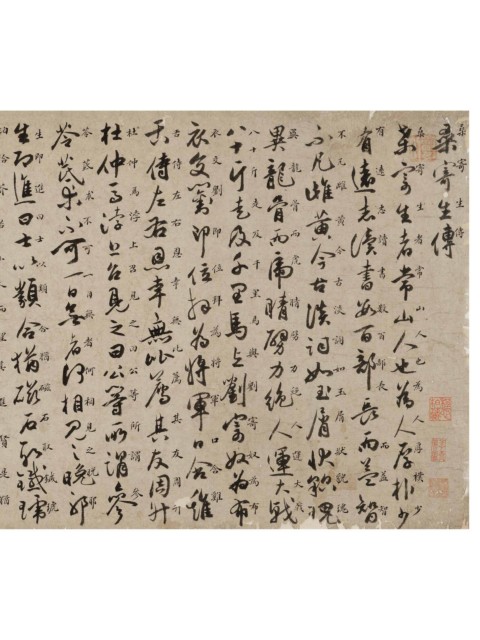 桑寄生傳
桑寄生者常山人也為人厚朴少
有遠志讀書數百部長而益智
不凡雌黃今古談詞如玉屑狀貌瑰
異龍骨而虎睛膂力絕人運大戟
八十斤走及千里馬與劉寄奴為布
衣交劉即位拜為將軍日含雞
舌侍左右恩幸無比薦其友周升
杜仲馬浡上召見之曰公等所謂參
苓芪朮不可一日無者何相見之晚耶
生即進曰士以類合猶磁石取鐵琥